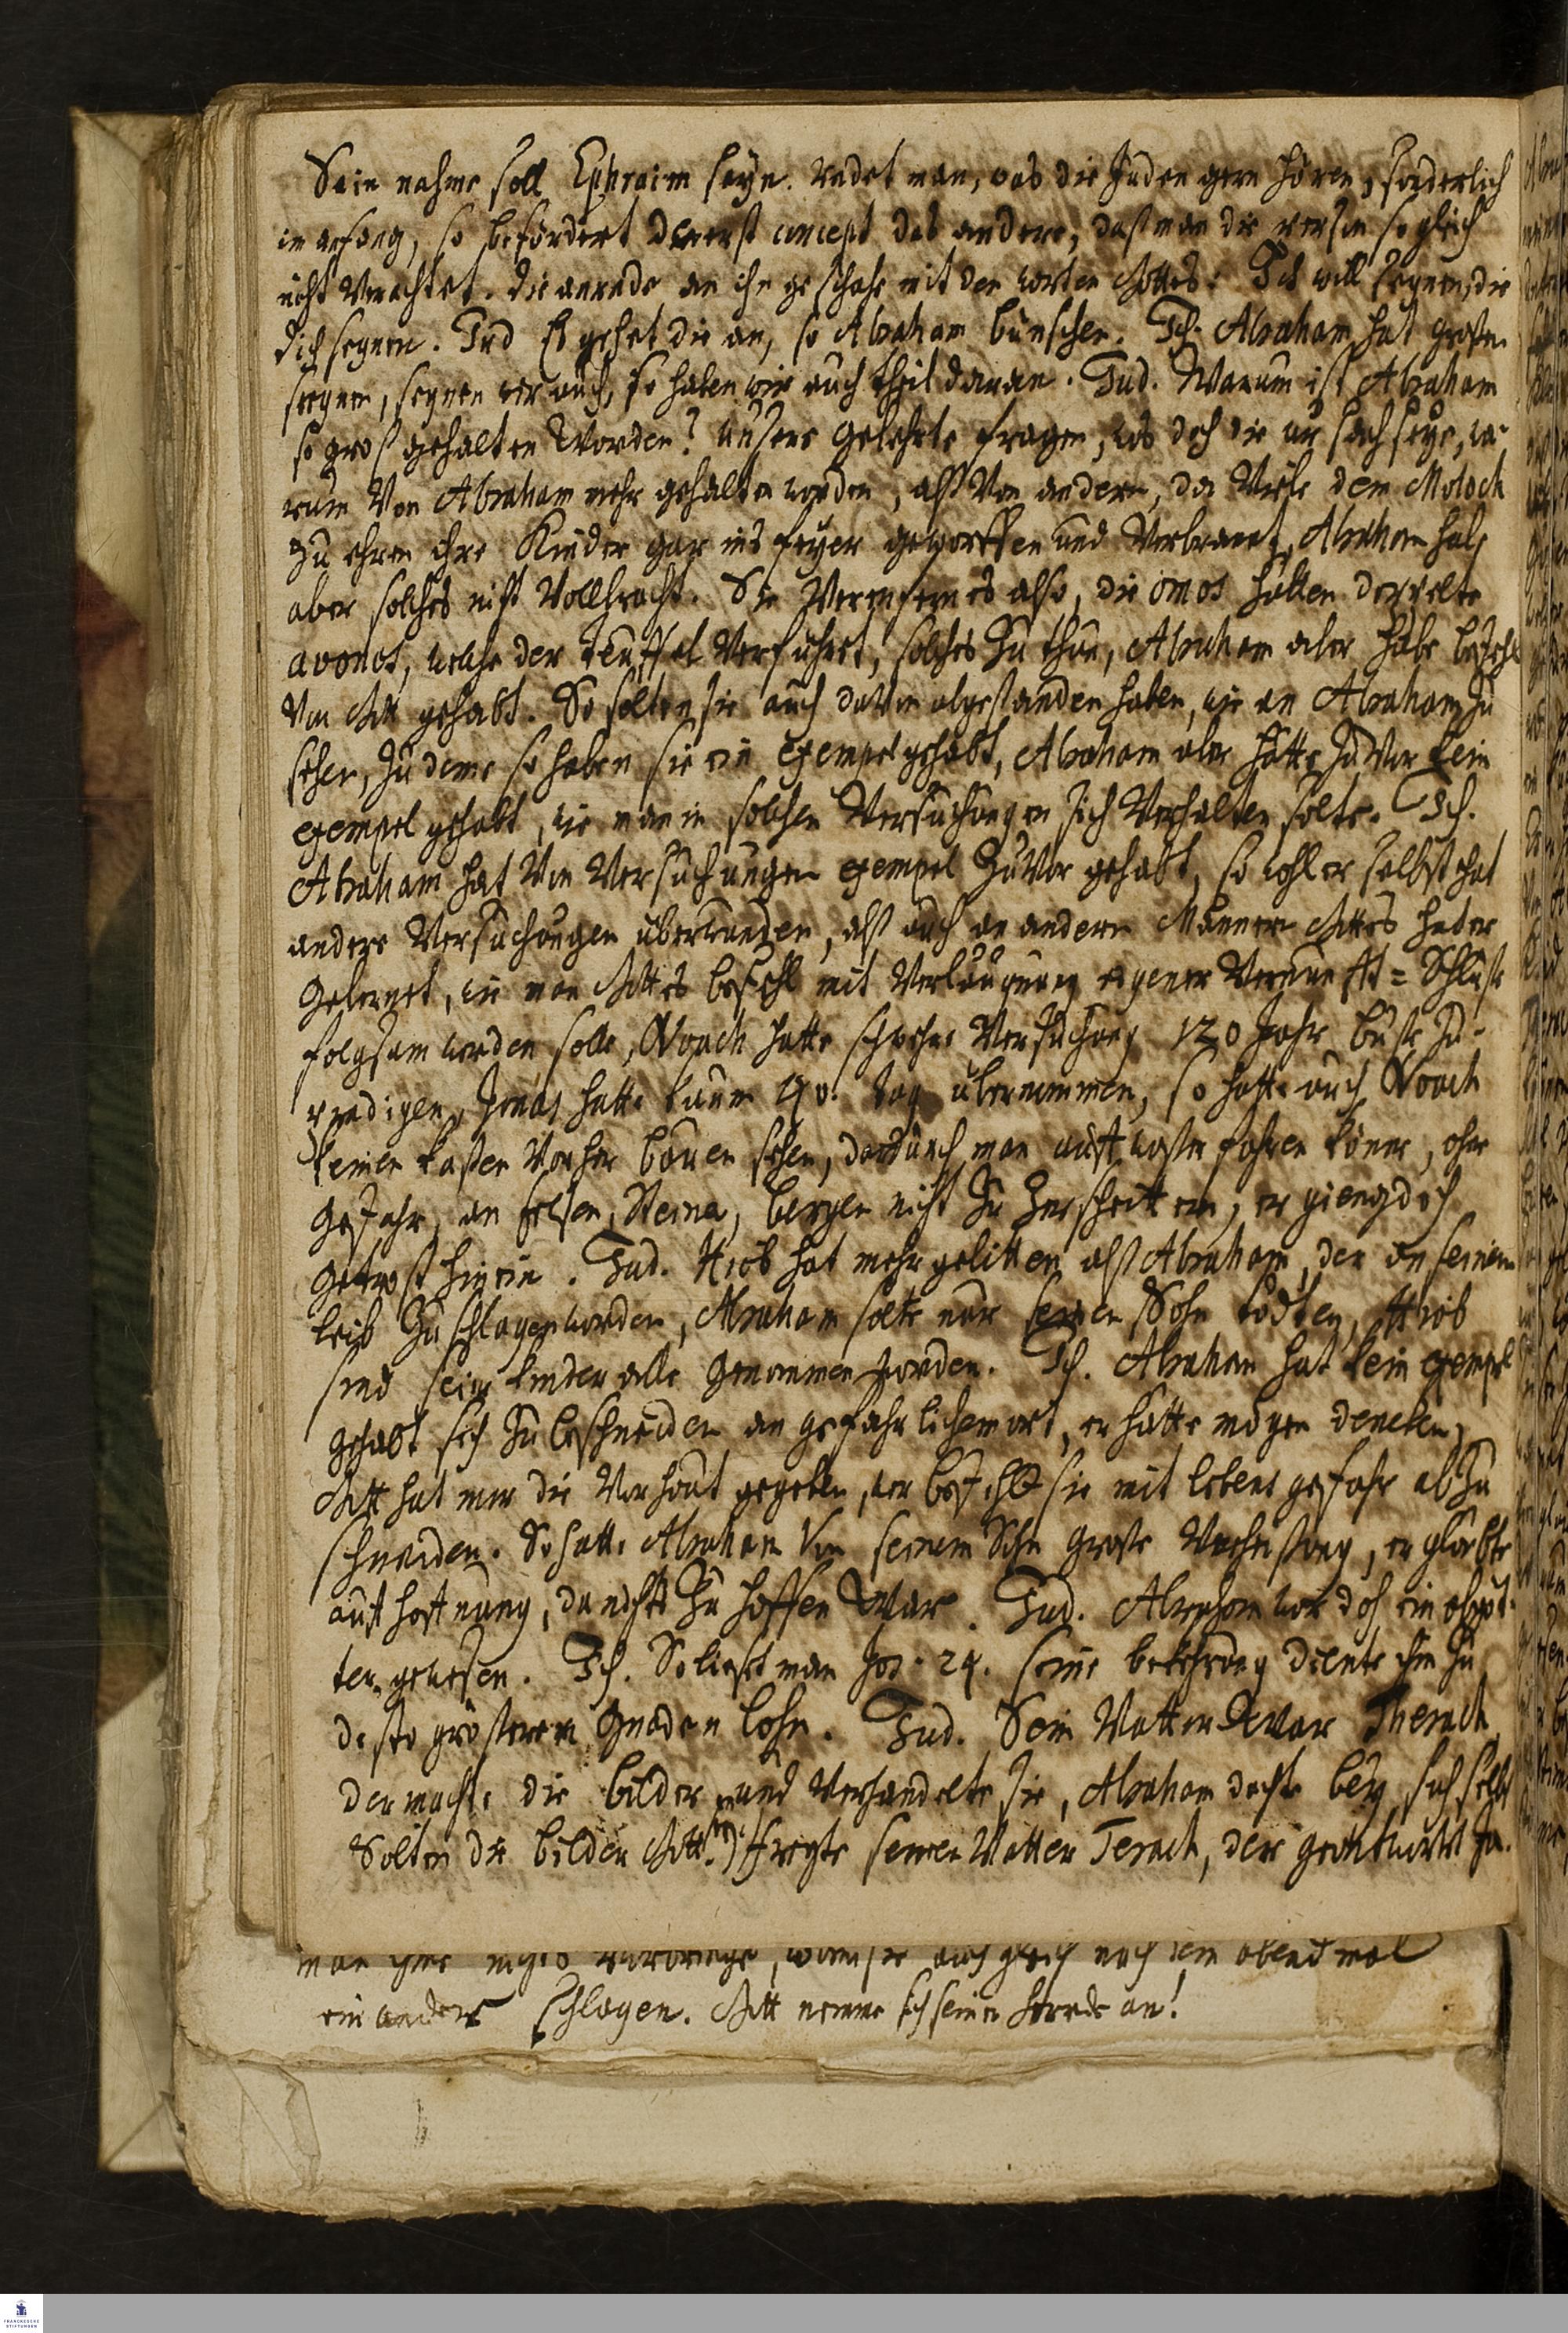 Sein nahme soll Ephraim seyn. redet man, was die Juden gern hören, sonderlich
im anfang, so befördert der erst concept das andere, daß man die person so gleich
nicht verachtet. die anrede an ihn geschahe mit den worten Gottes: Ich will segnen, die
dich segnen. Jud Es gehet die an, so Abraham wünschen. Ich. Abraham hat großen
seegen, segnen wir auch, so haben wir auch theil daran. Jud. Warum ist Abraham
so groß gehalten worden? unsere gelehrte fragen, was doch die ursach seye, wa-
rum von Abraham mehr gehalten worden, alß von andern, da viele dem Moloch
zu ehren ihre Kinder gar ins feyer geworffen und verbrannt, Abraham hab
aber solches nicht vollbracht. Sie verensern es also, die omos hätten der velte
avonos, welche der teuffel verführet, solches zu thun, Abraham aber habe befehl
von Gott gehabt. So solten sie auch davon abgestanden haben, wie an Abraham zu
sehen, zu deme so haben sie ein exempel gehabt, Abraham aber hatte zuvor kein
exempel gehabt, wie man in solchen versuchungen sich verhalten solte. Ich.
Abraham hat von versuchungen exempel zuvor gehabt, so wohl er selbst hat
andere versuchungen überwunden, alß auch an andern Männern Gottes hat er
gelernet, wie man Gottes befehl mit verläugnung eigener vernunfft=Schlüße
folgsam werden solle, Noach hatte schwehre versuchung 120 Jahr buße zu-
predigen, Jonas hatte kaum 40. tag übernommen, so hatte auch Noach
keinen kasten vorher bauen sehen, dardurch man auff waßer fahren könne, ohne
gefahr, an felsen, Steine, bergen nicht zu zerscheittern, er gieng doch
getrost hinein. Jud. Hiob hat mehr gelitten alß Abraham, der an seinem
leib zu schlagen worden, Abraham solte nur seinen Sohn tödten, Hiob
sind seine kinder alle genommen worden. Ich. Abraham hat kein exempel
gehabt sich zu beschneiden an gefährlichem ort, er hätte mögen dencken,
Gott hat mir die Vorhaut gegeben, wer befihlt sie mit lebens gefahr abzu
schneiden. So hatte Abraham von seinem Sohn große verheißung, er glaubte
auff hoffnung, da nichts zu hoffen war. Jud. Abraham war doch ein abgöt-
ter gewesen. Ich. So lieset man Jos. 24. seine bekehrung diente ihm zu
desto größerem gnaden lohn. Jud. Sein Vatter war Therach
der machte die bilder und verhandelte sie, Abraham dachte bey sich selbst
Solten die bilder Gott seyn? fragte seinen Vatter Terach, der geantwortet Ja.
man ihme nichts vorbringe, wann sie auch gleich nach dem abendmal
ein ander schlagen. Gott nemme sich seiner heerde an!
FRANCKESCHE
STIFTUNGEN